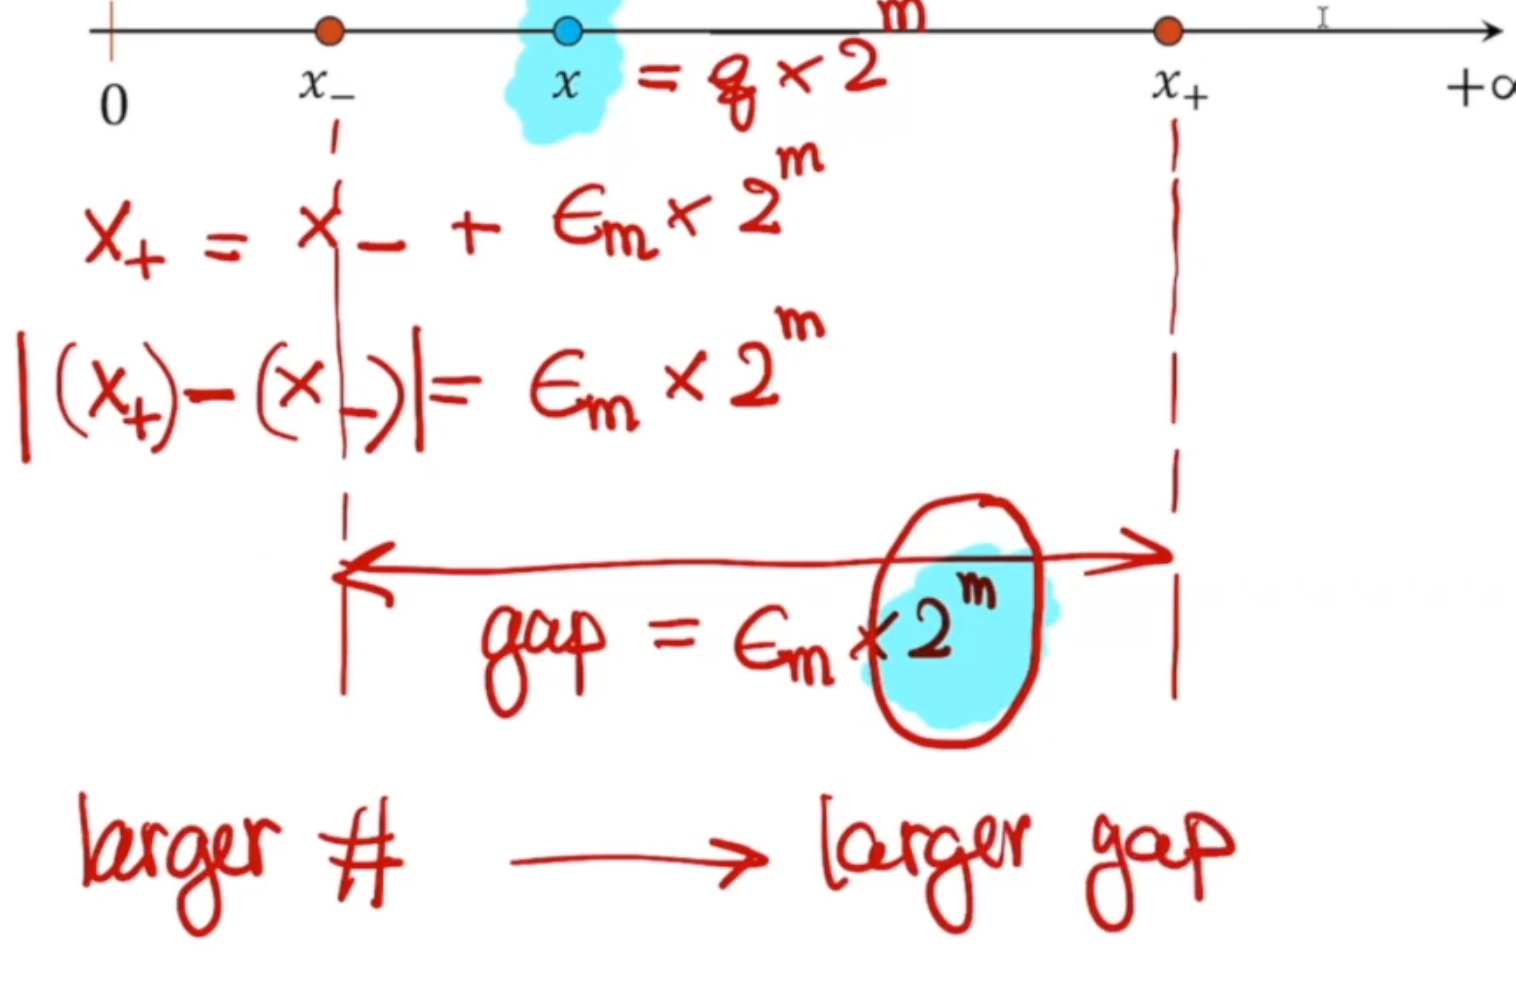 0 x₋ x = q × 2ᵐ x₊ +∞
x₊ = x₋ + ϵₘ × 2ᵐ
|(x₊) − (x₋)| = ϵₘ × 2ᵐ
gap = ϵₘ × 2ᵐ
larger # → larger gap